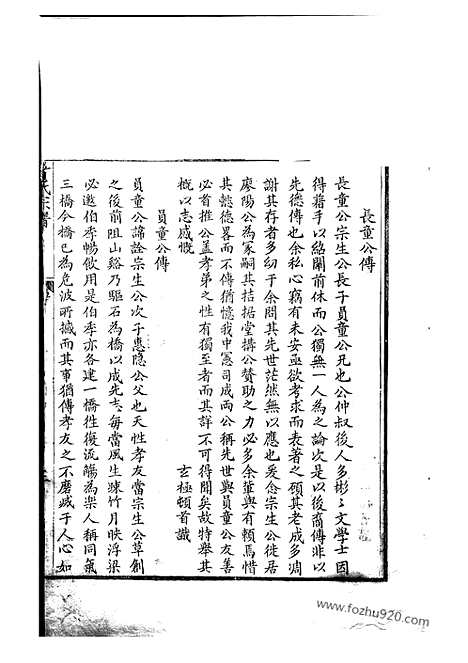 長童公傳
長童公宗生公長子員童公兄也公仲叔後人多彬〻文學士因
得藉手以紹闡前休而公獨無一人為之論次是以後裔傳非以
先德傳也余私心竊有未安亟欲考求而表著之顧其老成多凋
謝其存者多幼于余問其先世茫然無以應也爰念宗生公徙居
廖陽公為冢嗣其拮据堂搆公贊助之力必多余輩與有賴焉惜
其懿德畧而不傳猶憶我中憲司成兩公稱先世與員童公友善
必首推公蓋孝弟之性有獨至者而其詳不可得聞矣故特舉其
槪以志感慨
玄極頓首識
員童公傳
員童公諱詮宗生公次子愚隱公父也天性孝友當宗生公草創
之後前阻山谿乃驅石為橋以成先志每當風生竦竹月映浮梁
必邀伯季暢飲用是伯季亦各建一橋徃復流觴為楽人稱同氣
三橋今橋已為危波所撼而其事猶傳孝友之不磨滅于人心如
氏宗譜
www.fozhu920.com